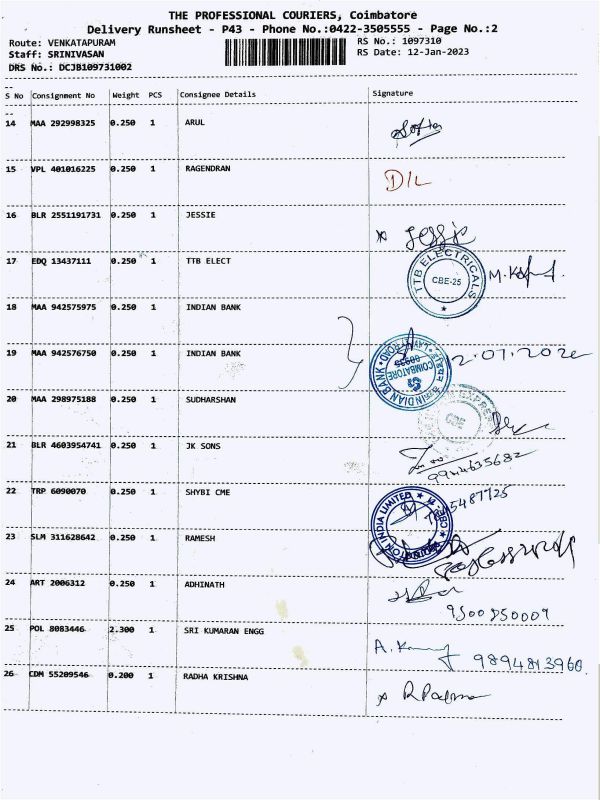 THE PROFESSIONAL COURIERS, Coimbatore
Delivery Runsheet - P43 - Phone No.:0422-3505555 - Page No.:2
Route: VENKATAPURAM RS No.: 1097310
Staff: SRINIVASAN RS Date: 12-Jan-2023
DRS No.: DCJB109731002
S No Consignment No Weight PCS Consignee Details Signature
14 MAA 292998325 0.250 1 ARUL
15 VPL 401016225 0.250 1 RAGENDRAN D/L
16 BLR 2551191731 0.250 1 JESSIE Jessie
17 EDQ 13437111 0.250 1 TTB ELECT
TTB ELECTRICALS CBE-25
18 MAA 942575975 0.250 1 INDIAN BANK
19 MAA 942576750 0.250 1 INDIAN BANK
INDIAN BANK COIMBATORE
20 MAA 298975188 0.250 1 SUDHARSHAN
CBE
21 BLR 4603954741 0.250 1 JK SONS
9944635682
22 TRP 6090070 0.250 1 SHYBI CME
INDIA LIMITED
23 SLM 311628642 0.250 1 RAMESH
24 ART 2006312 0.250 1 ADHINATH
9500850009
25 POL 8083446 2.300 1 SRI KUMARAN ENGG
9894813960
26 CDM 55209546 0.200 1 RADHA KRISHNA